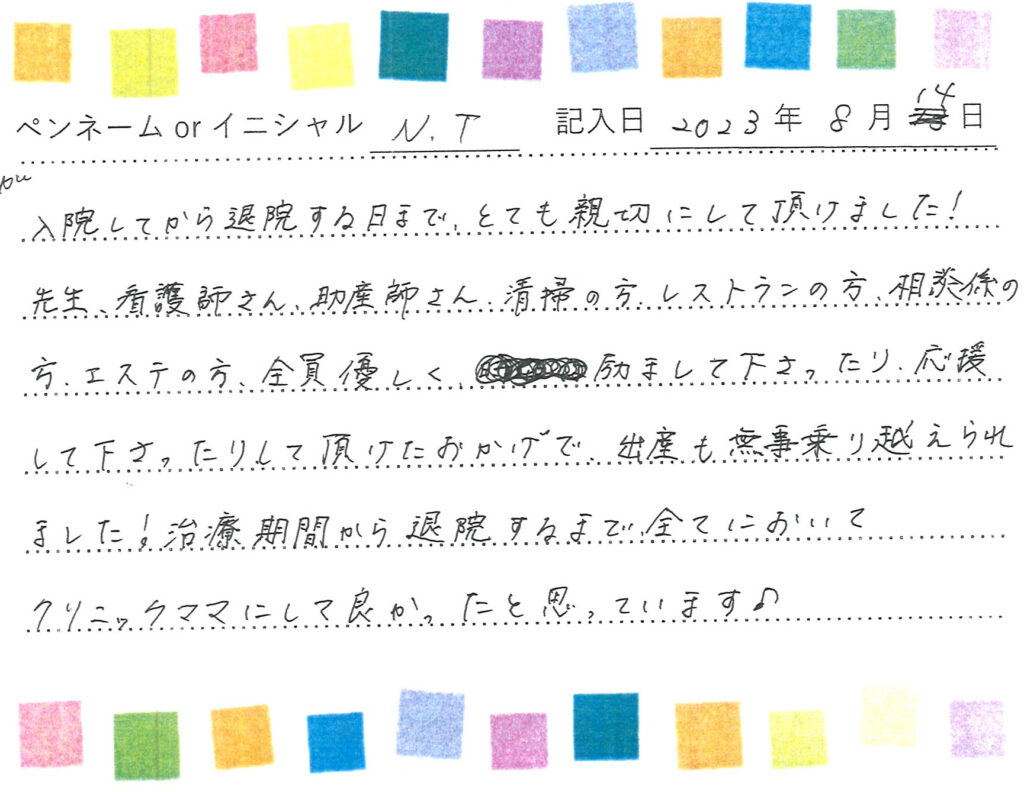 ペンネームorイニシャル N.T 記入日 2023年 8月 14日
入院してから退院する日まで、とても親切にして頂けました!
先生、看護師さん、助産師さん、清掃の方、レストランの方、相談係の
方、エステの方、全員優しく、励まして下さったり、応援
して下さったりして頂けたおかげで、出産も無事乗り越えられ
ました!治療期間から退院するまで、全てにおいて
クリニックママにして良かったと思っています♪